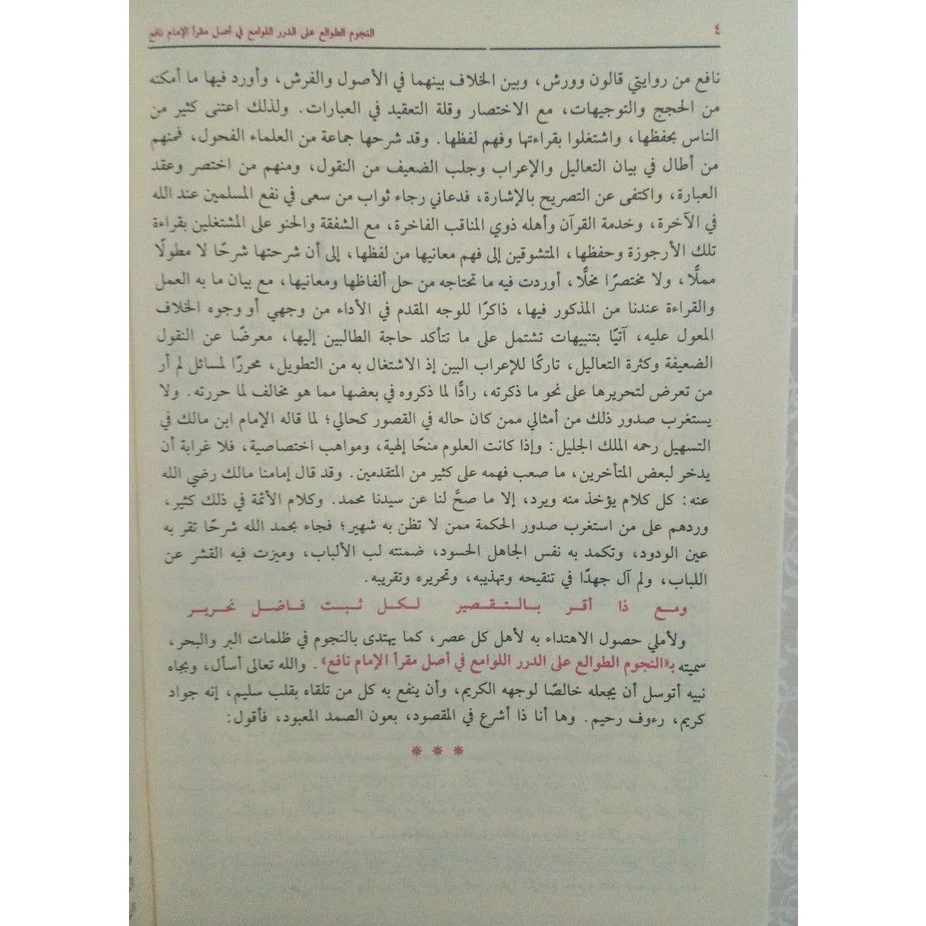 ٤
النجوم الطوالع على الدرر اللوامع في أصل مقرأ الإمام نافع
نافع من روايتي قالون وورش، وبين الخلاف بينهما في الأصول والفرش، وأورد فيها ما أمكنه
من الحجج والتوجيهات، مع الاختصار وقلة التعقيد في العبارات. ولذلك اعتنى كثير من
الناس بحفظها، واشتغلوا بقراءتها وفهم لفظها. وقد شرحها جماعة من العلماء الفحول، فمنهم
من أطال في بيان التعاليل والإعراب وجلب الضعيف من النقول، ومنهم من اختصر وعقد
العبارة، واكتفى عن التصريح بالإشارة، فدعاني رجاء ثواب من سعى في نفع المسلمين عند الله
في الآخرة، وخدمة القرآن وأهله ذوي المناقب الفاخرة، مع الشفقة والحنو على المشتغلين بقراءة
تلك الأرجوزة وحفظها، المتشوقين إلى فهم معانيها من لفظها، إلى أن شرحتها شرحًا لا مطولًا
مملًّا، ولا مختصرًا مخلًّا، أوردت فيه ما تحتاجه من حل ألفاظها ومعانيها، مع بيان ما به العمل
والقراءة عندنا من المذكور فيها، ذاكرًا للوجه المقدم في الأداء من وجهي أو وجوه الخلاف
المعول عليه، آتيًا بتنبيهات تشتمل على ما تتأكد حاجة الطالبين إليها، معرضًا عن النقول
الضعيفة وكثرة التعاليل، تاركًا للإعراب البين إذ الاشتغال به من التطويل، محررًا لمسائل لم أر
من تعرض لتحريرها على نحو ما ذكرته، رادًّا لما ذكروه في بعضها مما هو مخالف لما حررته. ولا
يستغرب صدور ذلك من أمثالي ممن كان حاله في القصور كحالي؛ لما قاله الإمام ابن مالك في
التسهيل رحمه الملك الجليل: وإذا كانت العلوم منحًا إلهية، ومواهب اختصاصية، فلا غرابة أن
يدخر لبعض المتأخرين، ما صعب فهمه على كثير من المتقدمين. وقد قال إمامنا مالك رضي الله
عنه: كل كلام يؤخذ منه ويرد، إلا ما صحَّ لنا عن سيدنا محمد. وكلام الأئمة في ذلك كثير،
وردهم على من استغرب صدور الحكمة ممن لا تظن به شهير؛ فجاء بحمد الله شرحًا تقر به
عين الودود، وتكمد به نفس الجاهل الحسود، ضمنته لب الألباب، وميزت فيه القشر عن
اللباب، ولم آل جهدًا في تنقيحه وتهذيبه، وتحريره وتقريبه.
ومع ذا أقر بالتقصير لكل ثبت فاضل نحرير
ولأملي حصول الاهتداء به لأهل كل عصر، كما يهتدى بالنجوم في ظلمات البر والبحر،
سميته بـ«النجوم الطوالع على الدرر اللوامع في أصل مقرأ الإمام نافع». والله تعالى أسأل، وبجاه
نبيه أتوسل أن يجعله خالصًا لوجهه الكريم، وأن ينفع به كل من تلقاه بقلب سليم، إنه جواد
كريم، رءوف رحيم. وها أنا ذا أشرع في المقصود، بعون الصمد المعبود، فأقول:
* * *